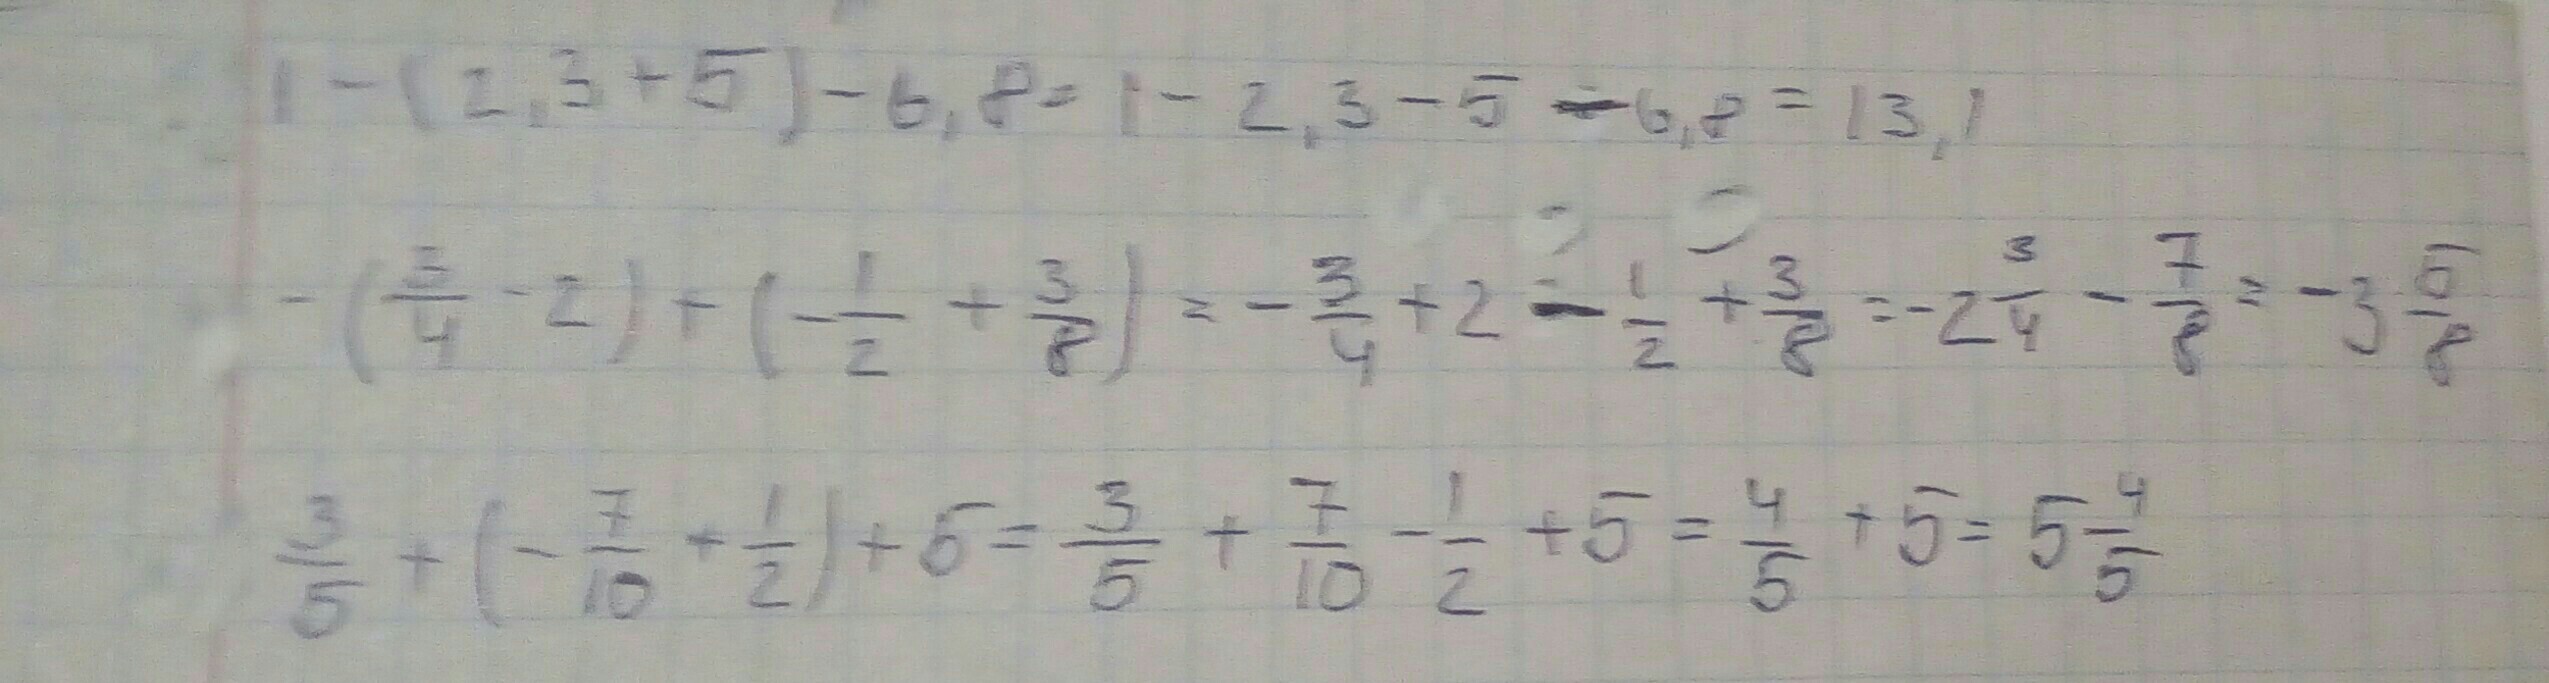 1 - (2,3 + 5) - 6,8 = 1 - 2,3 - 5 - 6,8 = 13,1
-(3/4 - 2) + (-1/2 + 3/8) = -3/4 + 2 - 1/2 + 3/8 = -2 3/4 - 7/8 = -3 5/8
3/5 + (-7/10 + 1/2) + 5 = 3/5 + 7/10 - 1/2 + 5 = 4/5 + 5 = 5 4/5